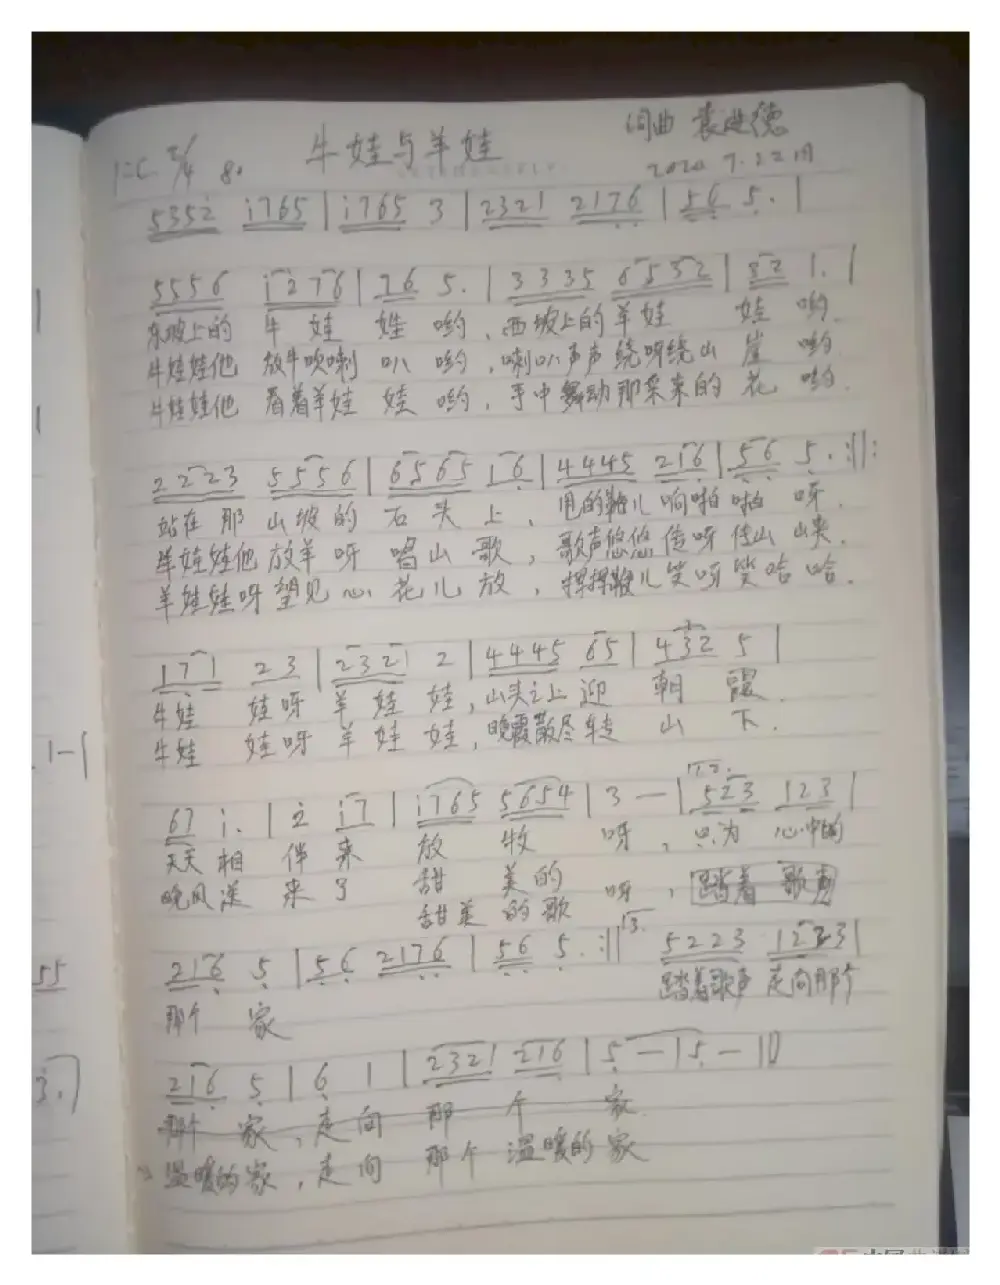 牛娃与羊娃
词曲 袁进德
1=C 2/4 80
2020 7.22日
5352 i765 | i765 3 | 2321 2176 | 56 5. |
5556 i276 | 76 5. | 3335 6532 | 32 1. |
东坡上的 牛 娃 娃 哟, 西坡上的羊娃 娃 哟.
牛娃娃他 放牛吹喇 叭 哟, 喇叭声声 绕呀绕山 崖 哟
牛娃娃他 看着羊娃 娃 哟, 手中舞动那朵来的 花 哟.
2223 5556 | 6565 16 | 4445 216 | 56 5. :||:
站在那 山坡的 石 头 上, 甩的鞭儿 响啪 啪 呀.
羊娃娃他 放羊呀 唱山 歌, 歌声悠悠 传呀 传山 山来.
羊娃娃呀 望见 心 花儿 放, 挥挥鞭儿 笑呀笑哈 哈.
171 23 | 2321 2 | 4445 65 | 432 5 |
牛娃 娃呀 羊 娃 娃, 山头之上 迎 朝 霞.
牛娃 娃呀 羊 娃 娃, 晚霞散尽 转 山 下.
67 i. | 2 i7 | i765 5654 | 3 — | 1.2. 523 123 |
天天 相 伴 来 放 牧 呀, 只为 心中的
晚风 送 来 了 甜 美的 呀, 踏着 歌声
甜美 的歌
216 5 | 56 2176 | 56 5. :|| 3. 5223 1233 |
那个 家 踏着歌声 走向那个
216 5 | 6 1 | 2321 216 | 5 — | 5 — ||
那个 家, 走 向 那 个 家
温暖的家, 走 向 那个 温暖的家
1-
55
3.)